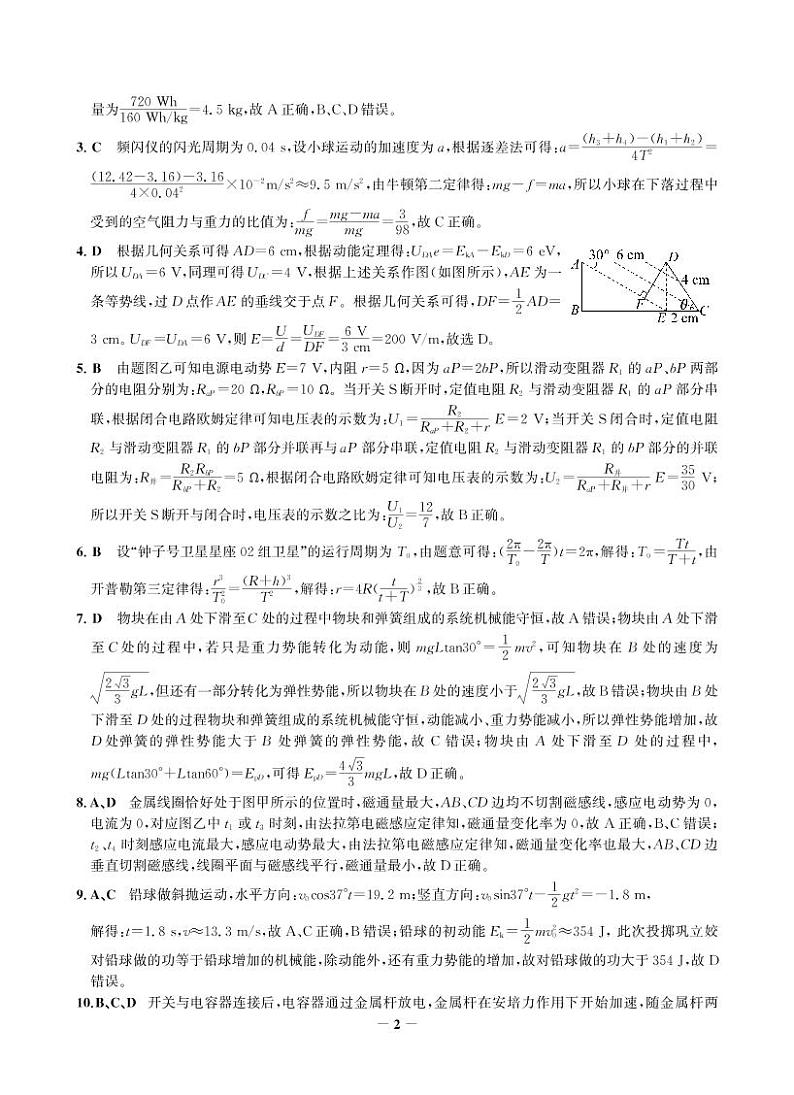 量为720 Wh/160 Wh/kg=4.5 kg,故 A 正确,B、C、D 错误。
3. C 频闪仪的闪光周期为 0.04 s,设小球运动的加速度为 a,根据逐差法可得:a=((h₃+h₄)-(h₁+h₂))/4T²=
((12.42-3.16)-3.16)/(4×0.04²)×10⁻²m/s²≈9.5 m/s²,由牛顿第二定律得:mg-f=ma,所以小球在下落过程中
受到的空气阻力与重力的比值为:f/mg=(mg-ma)/mg=3/98,故 C 正确。
4. D 根据几何关系可得 AD=6 cm,根据动能定理得:U_DA e=E_kA-E_kD=6 eV,
所以 U_DA=6 V,同理可得 U_DC=4 V,根据上述关系作图(如图所示),AE 为一
条等势线,过 D 点作 AE 的垂线交于点 F。根据几何关系可得,DF=1/2 AD=
3 cm。U_DF=U_DA=6 V,则 E=U/d=U_DF/DF=6 V/3 cm=200 V/m,故选 D。
A 30° 6 cm D
4 cm
F θ
B E 2 cm C
5. B 由题图乙可知电源电动势 E=7 V,内阻 r=5 Ω,因为 aP=2bP,所以滑动变阻器 R₁ 的 aP、bP 两部
分的电阻分别为:R_aP=20 Ω,R_bP=10 Ω。当开关 S 断开时,定值电阻 R₂ 与滑动变阻器 R₁ 的 aP 部分串
联,根据闭合电路欧姆定律可知电压表的示数为:U₁=R₂/(R_aP+R₂+r) E=2 V;当开关 S 闭合时,定值电阻
R₂ 与滑动变阻器 R₁ 的 bP 部分并联再与 aP 部分串联,定值电阻 R₂ 与滑动变阻器 R₁ 的 bP 部分的并联
电阻为:R并=R₂R_bP/(R_bP+R₂)=5 Ω,根据闭合电路欧姆定律可知电压表的示数为:U₂=R并/(R_aP+R并+r) E=35/30 V;
所以开关 S 断开与闭合时,电压表的示数之比为:U₁/U₂=12/7,故 B 正确。
6. B 设“钟子号卫星星座 02 组卫星”的运行周期为 T₀,由题意可得:(2π/T₀-2π/T)t=2π,解得:T₀=Tt/(T+t),由
开普勒第三定律得:r³/T₀²=(R+h)³/T²,解得:r=4R(t/(t+T))^(2/3),故 B 正确。
7. D 物块在由 A 处下滑至C 处的过程中物块和弹簧组成的系统机械能守恒,故 A 错误;物块由 A 处下滑
至 C 处的过程中,若只是重力势能转化为动能,则 mgLtan30°=1/2 mv²,可知物块在 B 处的速度为
√(2√3/3 gL),但还有一部分转化为弹性势能,所以物块在 B 处的速度小于√(2√3/3 gL),故 B 错误;物块由 B 处
下滑至 D 处的过程物块和弹簧组成的系统机械能守恒,动能减小、重力势能减小,所以弹性势能增加,故
D 处弹簧的弹性势能大于 B 处弹簧的弹性势能,故 C 错误;物块由 A 处下滑至 D 处的过程中,
mg(Ltan30°+Ltan60°)=E_pD,可得 E_pD=4√3/3 mgL,故 D 正确。
8. A、D 金属线圈恰好处于图甲所示的位置时,磁通量最大,AB、CD 边均不切割磁感线,感应电动势为 0,
电流为 0,对应图乙中 t₁ 或 t₃ 时刻,由法拉第电磁感应定律知,磁通量变化率为 0,故 A 正确,B、C 错误;
t₂、t₄ 时刻感应电流最大,感应电动势最大,由法拉第电磁感应定律知,磁通量变化率也最大,AB、CD 边
垂直切割磁感线,线圈平面与磁感线平行,磁通量最小,故 D 正确。
9. A、C 铅球做斜抛运动,水平方向:v₀cos37°t=19.2 m;竖直方向:v₀sin37°t-1/2 gt²=-1.8 m,
解得:t=1.8 s,v≈13.3 m/s,故 A、C 正确,B 错误;铅球的初动能 E_k=1/2 mv₀²≈354 J, 此次投掷巩立姣
对铅球做的功等于铅球增加的机械能,除动能外,还有重力势能的增加,故对铅球做的功大于 354 J,故 D
错误。
10. B、C、D 开关与电容器连接后,电容器通过金属杆放电,金属杆在安培力作用下开始加速,随金属杆两
— 2 —